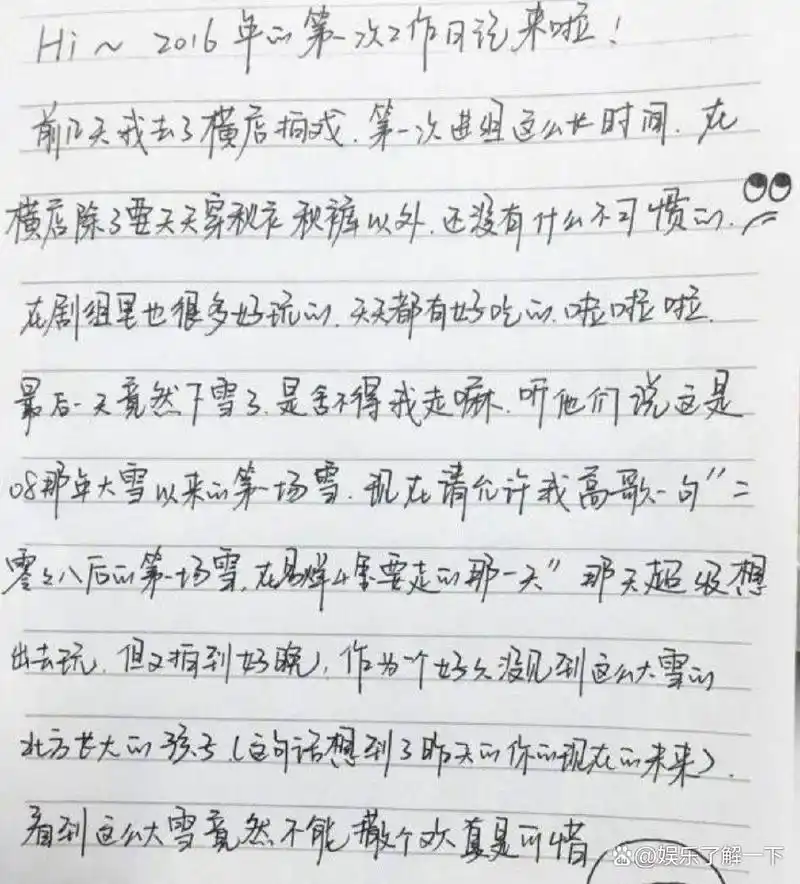 Hi~ 2016年的第一次工作日记来啦!
前几天我去了横店拍戏.第一次进组这么长时间.在
横店除了要天天穿秋衣秋裤以外.还没有什么不习惯的.
在剧组里也很多好玩的.天天都有好吃的.啦啦啦.
最后一天竟然下雪了.是舍不得我走嘛.听他们说这是
08那年大雪以来的第一场雪.现在请允许我高歌一句"二
零零八后的第一场雪.在易烊千玺要走的那一天"那天超级想
出去玩.但又拍到好晚,作为一个好久没见到这么大雪的
北方长大的孩子(这句话想到了昨天的你的现在的未来).
看到这么大雪竟然不能撒个欢真是可惜
@娱乐了解一下